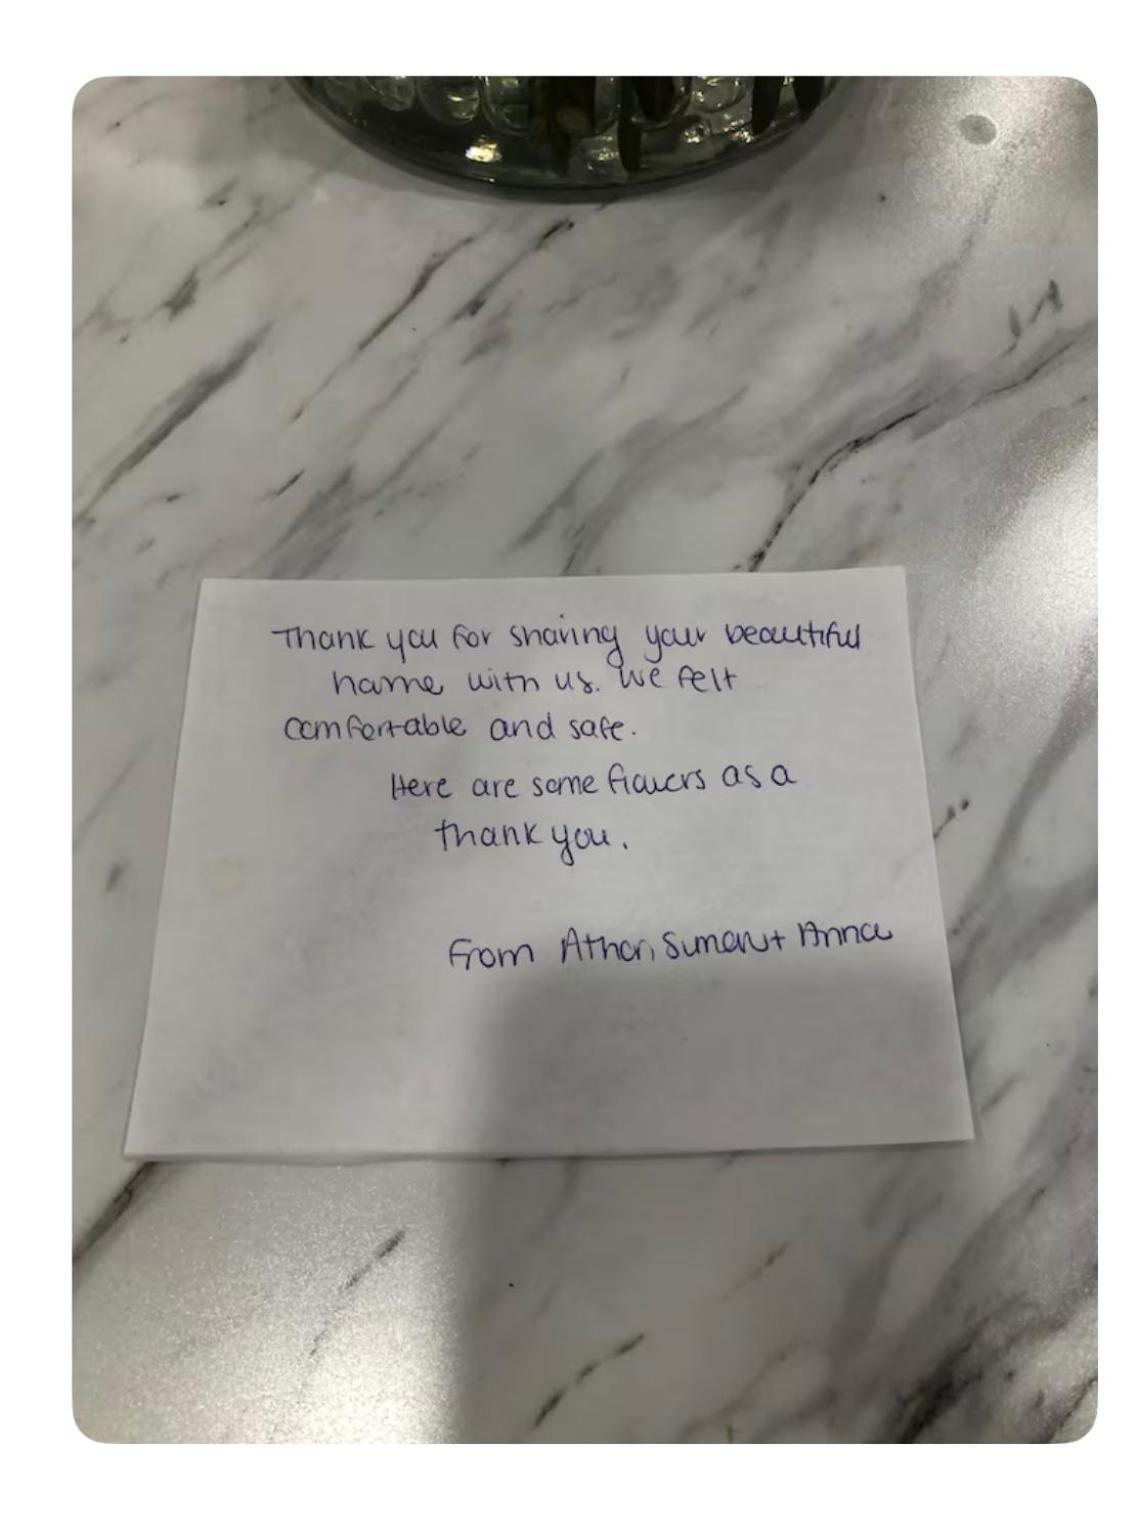 Thank you for sharing your beautiful
home with us. We felt
comfortable and safe.
Here are some flowers as a
thank you.
From Simon + Anna